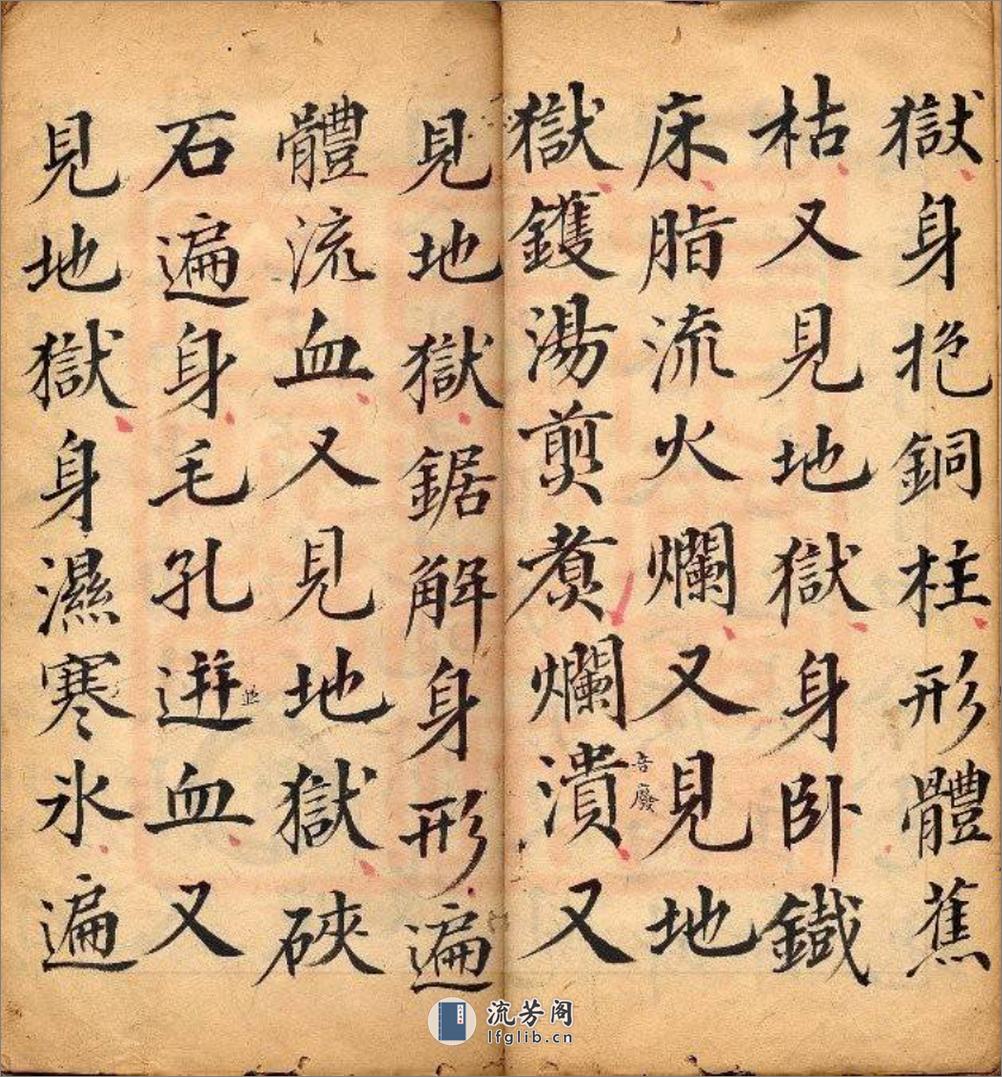 獄身抱銅柱形體蕉
枯又見地獄身卧鐵
床脂流火爛又見地
獄鑊湯煎煮爛潰又
音廢
見地獄鋸解身形遍
體流血又見地獄硤
石遍身毛孔迸血又
並
見地獄身濕寒氷遍
流芳阁
lfglib.cn